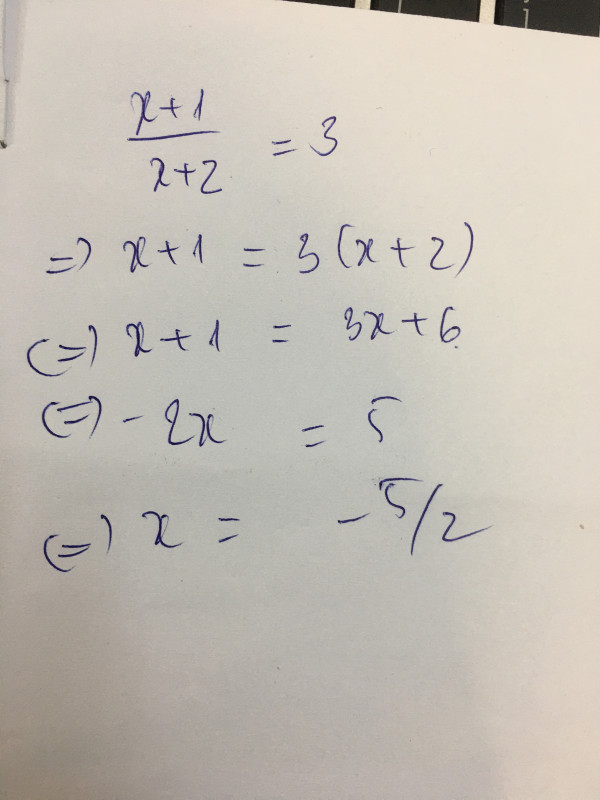 x+1
/
x+2 = 3
=> x+1 = 3(x+2)
(=) x+1 = 3x+6
(=) -2x = 5
(=) x = -5/2